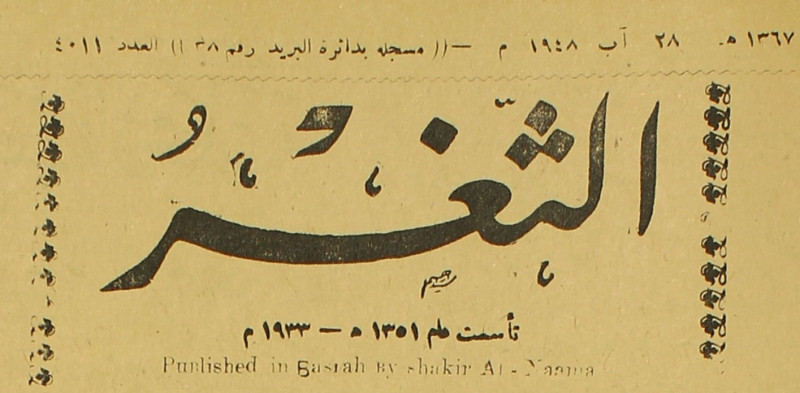 ١٣٦٧ هـ ٢٨ آب ١٩٤٨ م —(( مسجله بدائرة البريد رقم ٣٨ )) العدد ٤٠١١
الثَّغْرُ
تأسست عام ١٣٥١ هـ — ١٩٣٣ م
Punlished in Basrah By shakir Al-Naama